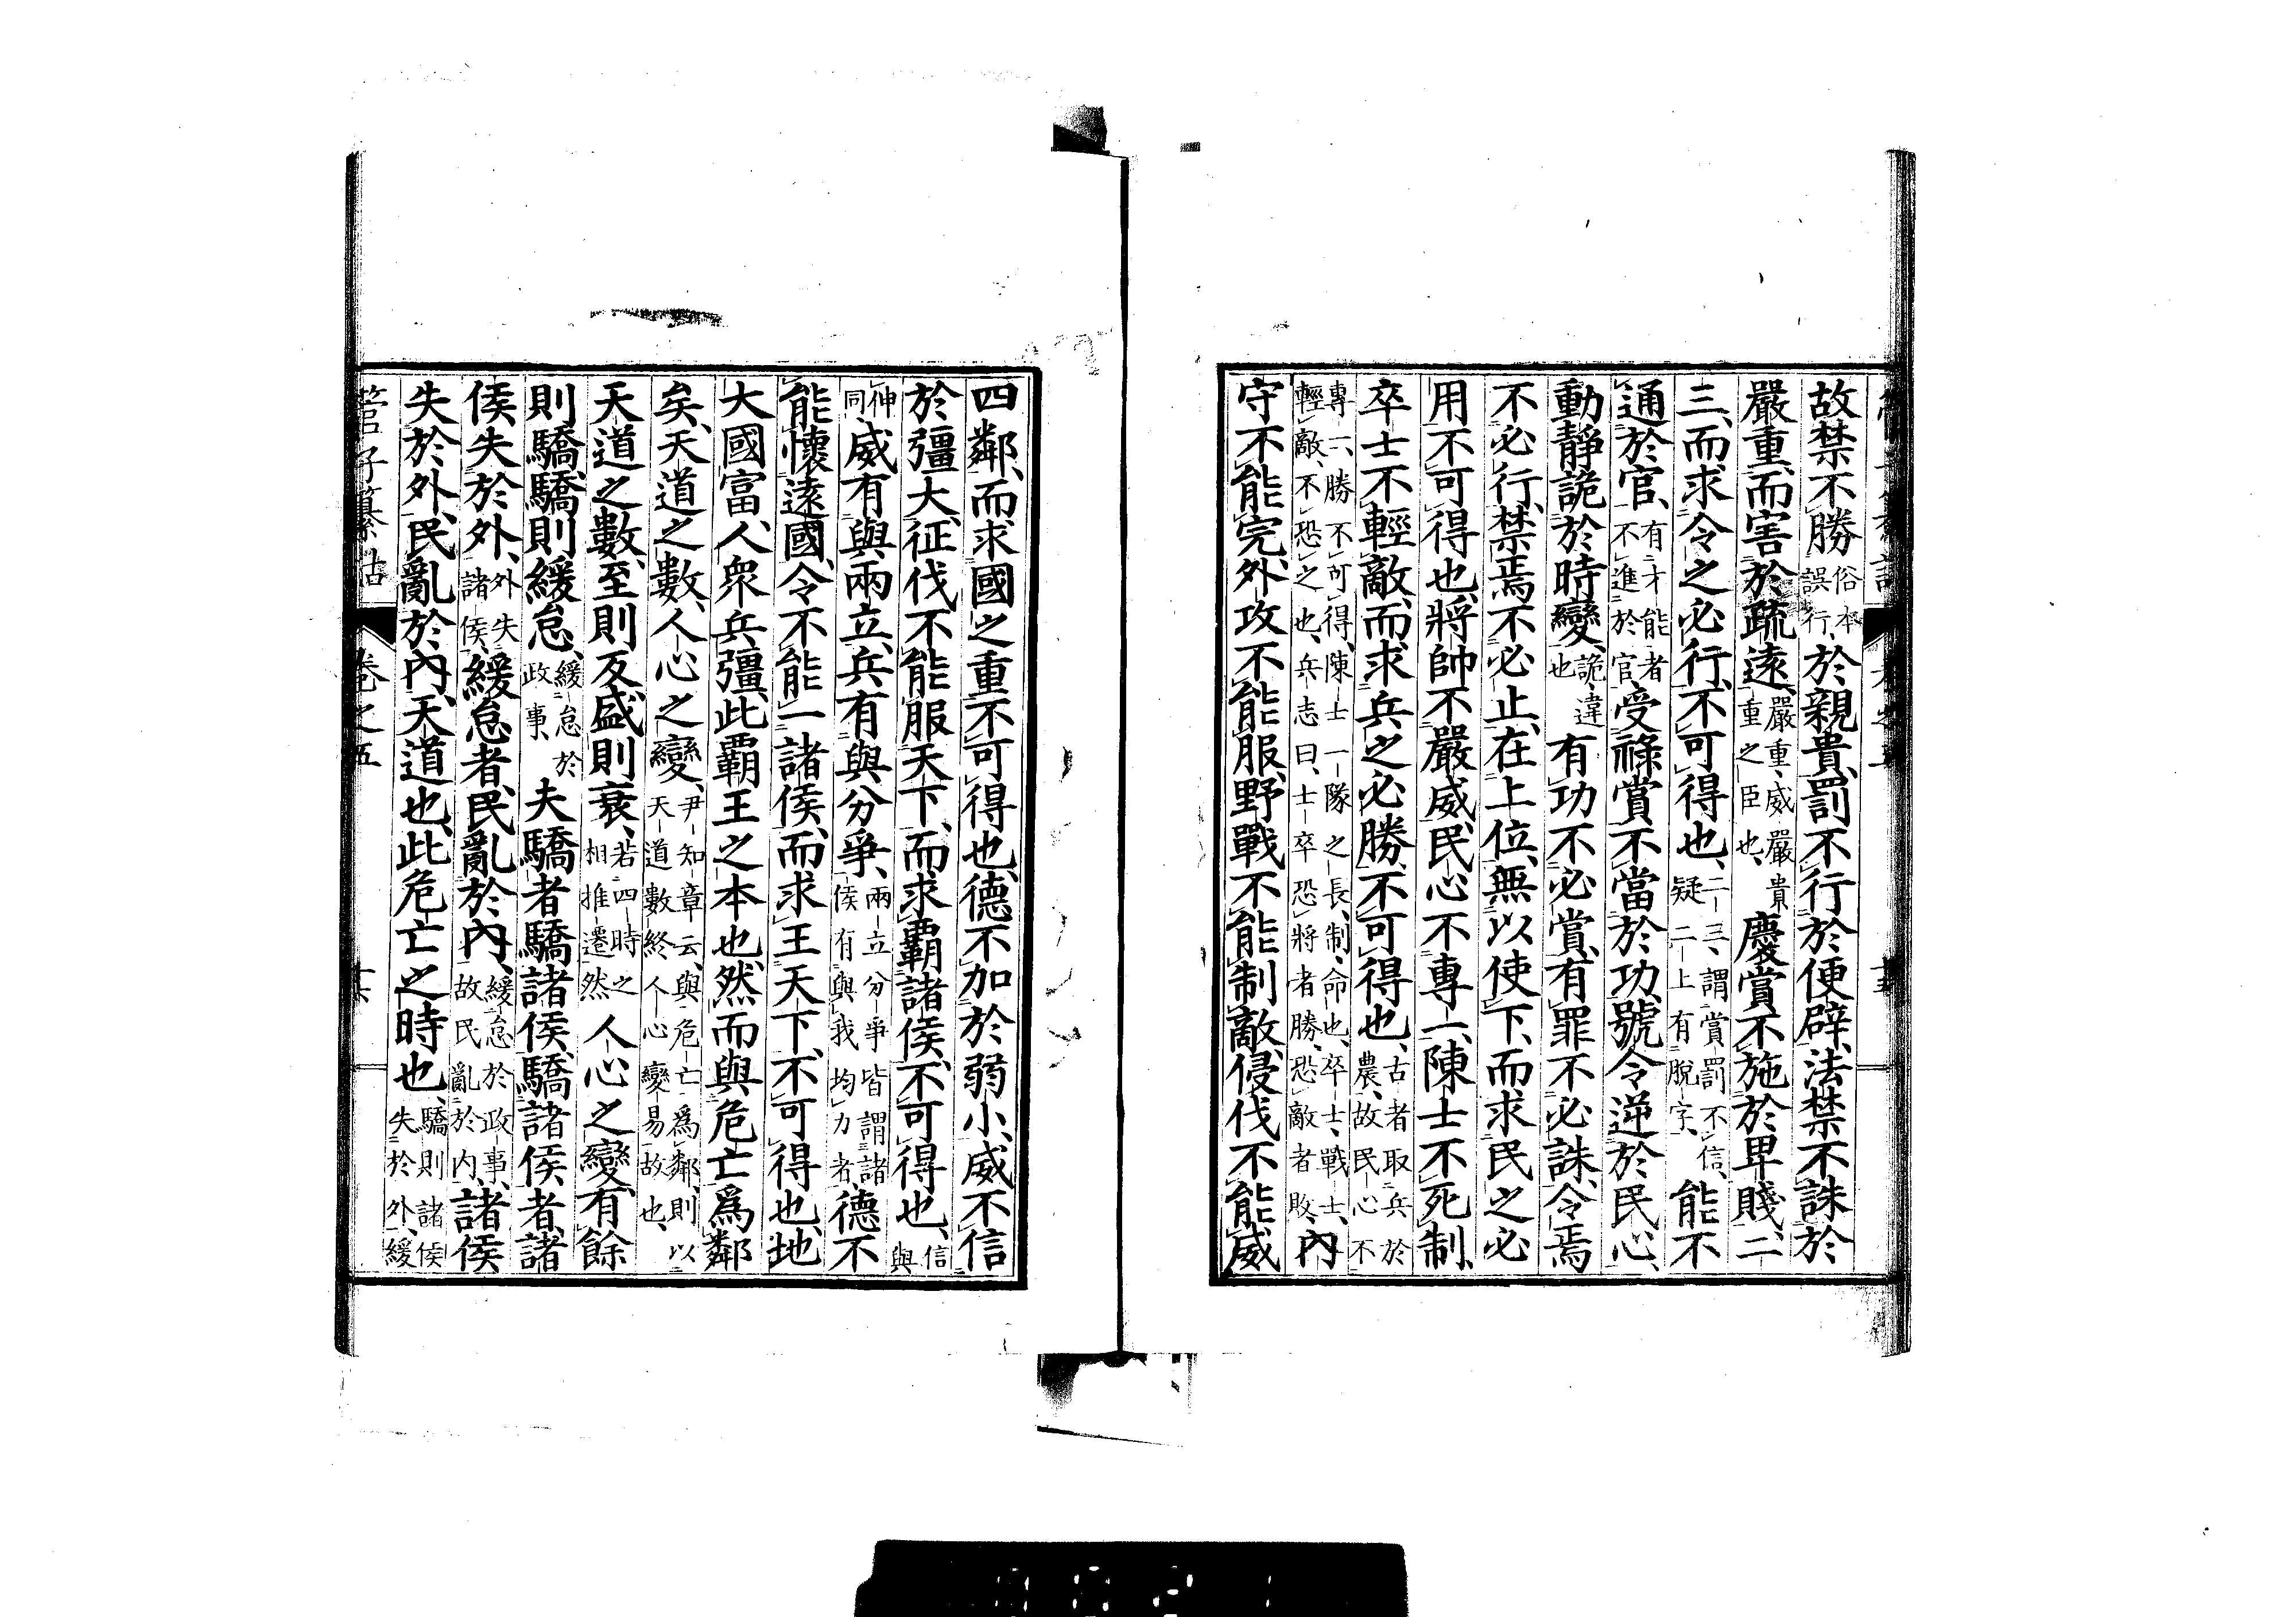 故禁不勝俗本誤行、於親貴、罰不行於便辟、法禁不誅於
嚴重、而害於疏遠、嚴重、威嚴貴重之臣也、慶賞不施於卑賤、二
三、而求令之必行、不可得也、二三、謂賞罰不信、疑二上有脫字、能不
通於官、有才能者不進於官、受祿賞不當於功、號令逆於民心、
動靜詭於時變、詭、違也有功不必賞、有罪不必誅、令焉
不必行、禁焉不必止、在上位、無以使下、而求民之必
用、不可得也、將帥不嚴威、民心不專一、陳士不死制、
卒士不輕敵、而求兵之必勝、不可得也、古者取兵於農、故民心不
專一、勝不可得、陳士一隊之長、制、命也、卒士、戰士、輕敵、不恐之也、兵志曰、士卒恐將者勝、恐敵者敗、內
守不能完、外攻不能服、野戰不能制敵、侵伐不能威
四鄰、而求國之重、不可得也、德不加於弱小、威不信
於彊大、征伐不能服天下、而求霸諸侯、不可得也、信與
伸同、威有與兩立、兵有與分爭、兩立分爭皆謂諸侯有與我均力者、德不
能懷遠國、令不能一諸侯、而求王天下、不可得也、地
大國富、人衆兵彊、此霸王之本也、然而與危亡爲鄰
矣、天道之數、人心之變、尹知章云、與危亡爲鄰、則以天道數終人心變易故也、
天道之數、至則反、盛則衰、若四時之相推遷然人心之變、有餘
則驕、驕則緩怠、緩怠於政事、夫驕者驕諸侯、驕諸侯者、諸
侯失於外、外失諸侯、緩怠者、民亂於內、緩怠於政事、故民亂於內、諸侯
失於外、民亂於內、天道也、此危亡之時也、驕則諸侯失於外、緩
管子纂詁
卷之五